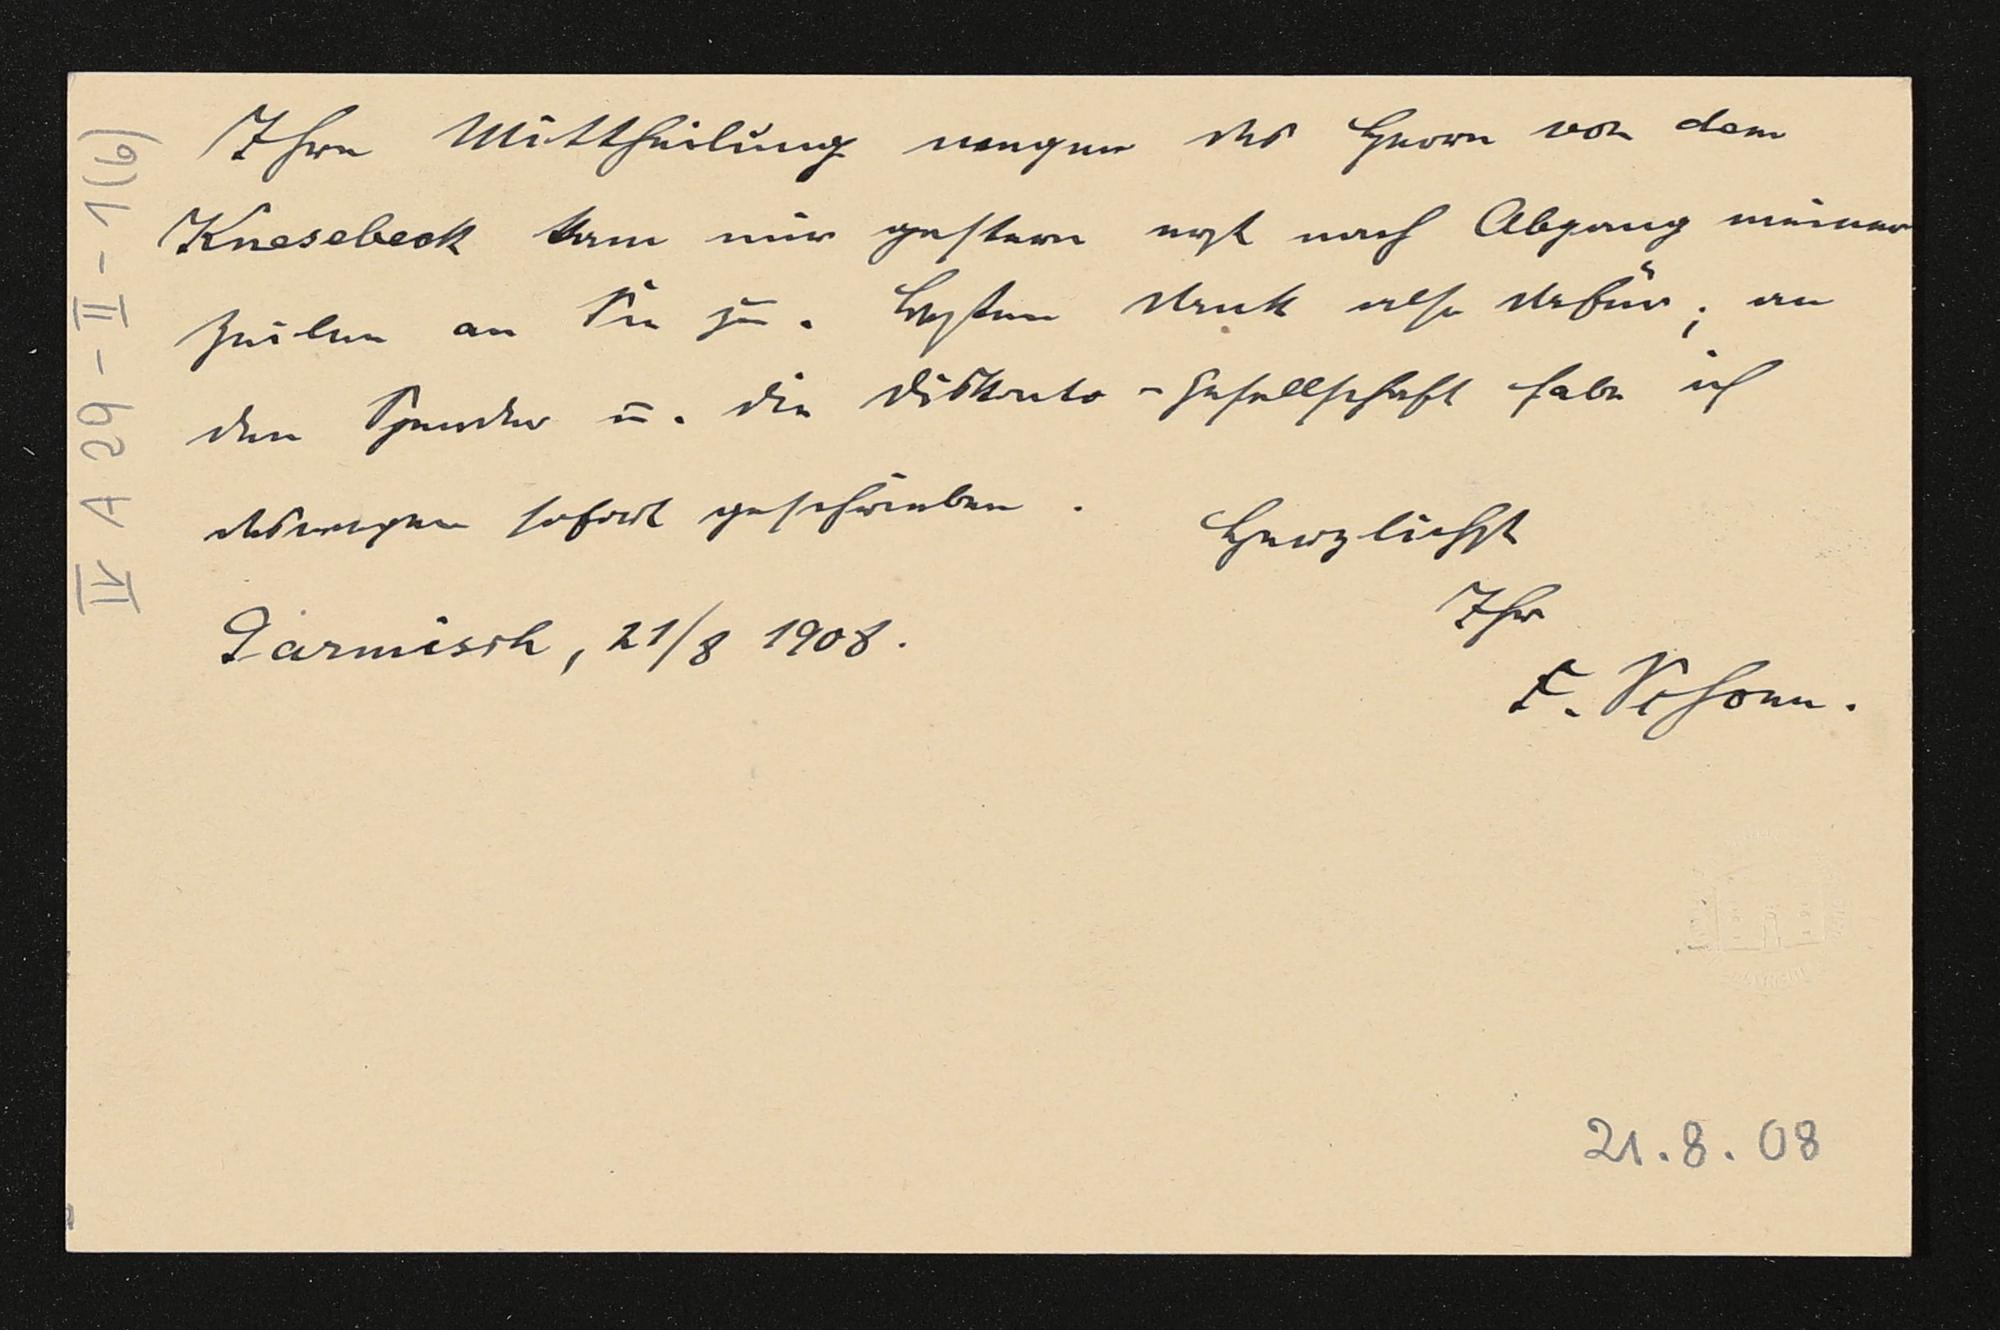 Ihre Mittheilung wegen des Herrn von dem
Knesebeck kam mir gestern erst nach Abgang meiner
Zeilen an Sie zu. Besten Dank also dafür; an
den Spender u. die Diskonto-Gesellschaft habe ich
deswegen sofort geschrieben. Herzlichst
Ihr
Garmisch, 21/8 1908.
F. Schoen.
IV A 29-II-1(6)
21.8.08